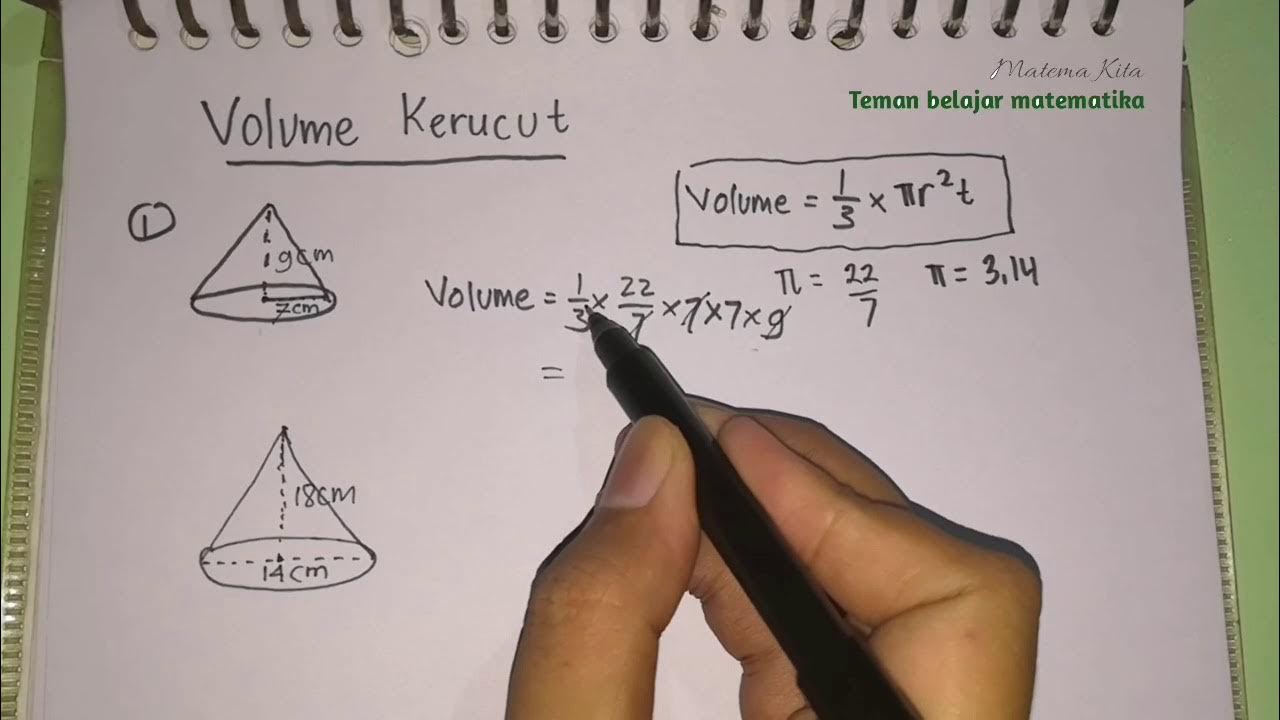 Matema Kita
Teman belajar matematika
Volume Kerucut
Volume = 1/3 × πr²t
①
9cm
7cm
π = 22/7 π = 3.14
Volume = 1/3 × 22/7 × 7 × 7 × 9
=
18cm
14cm